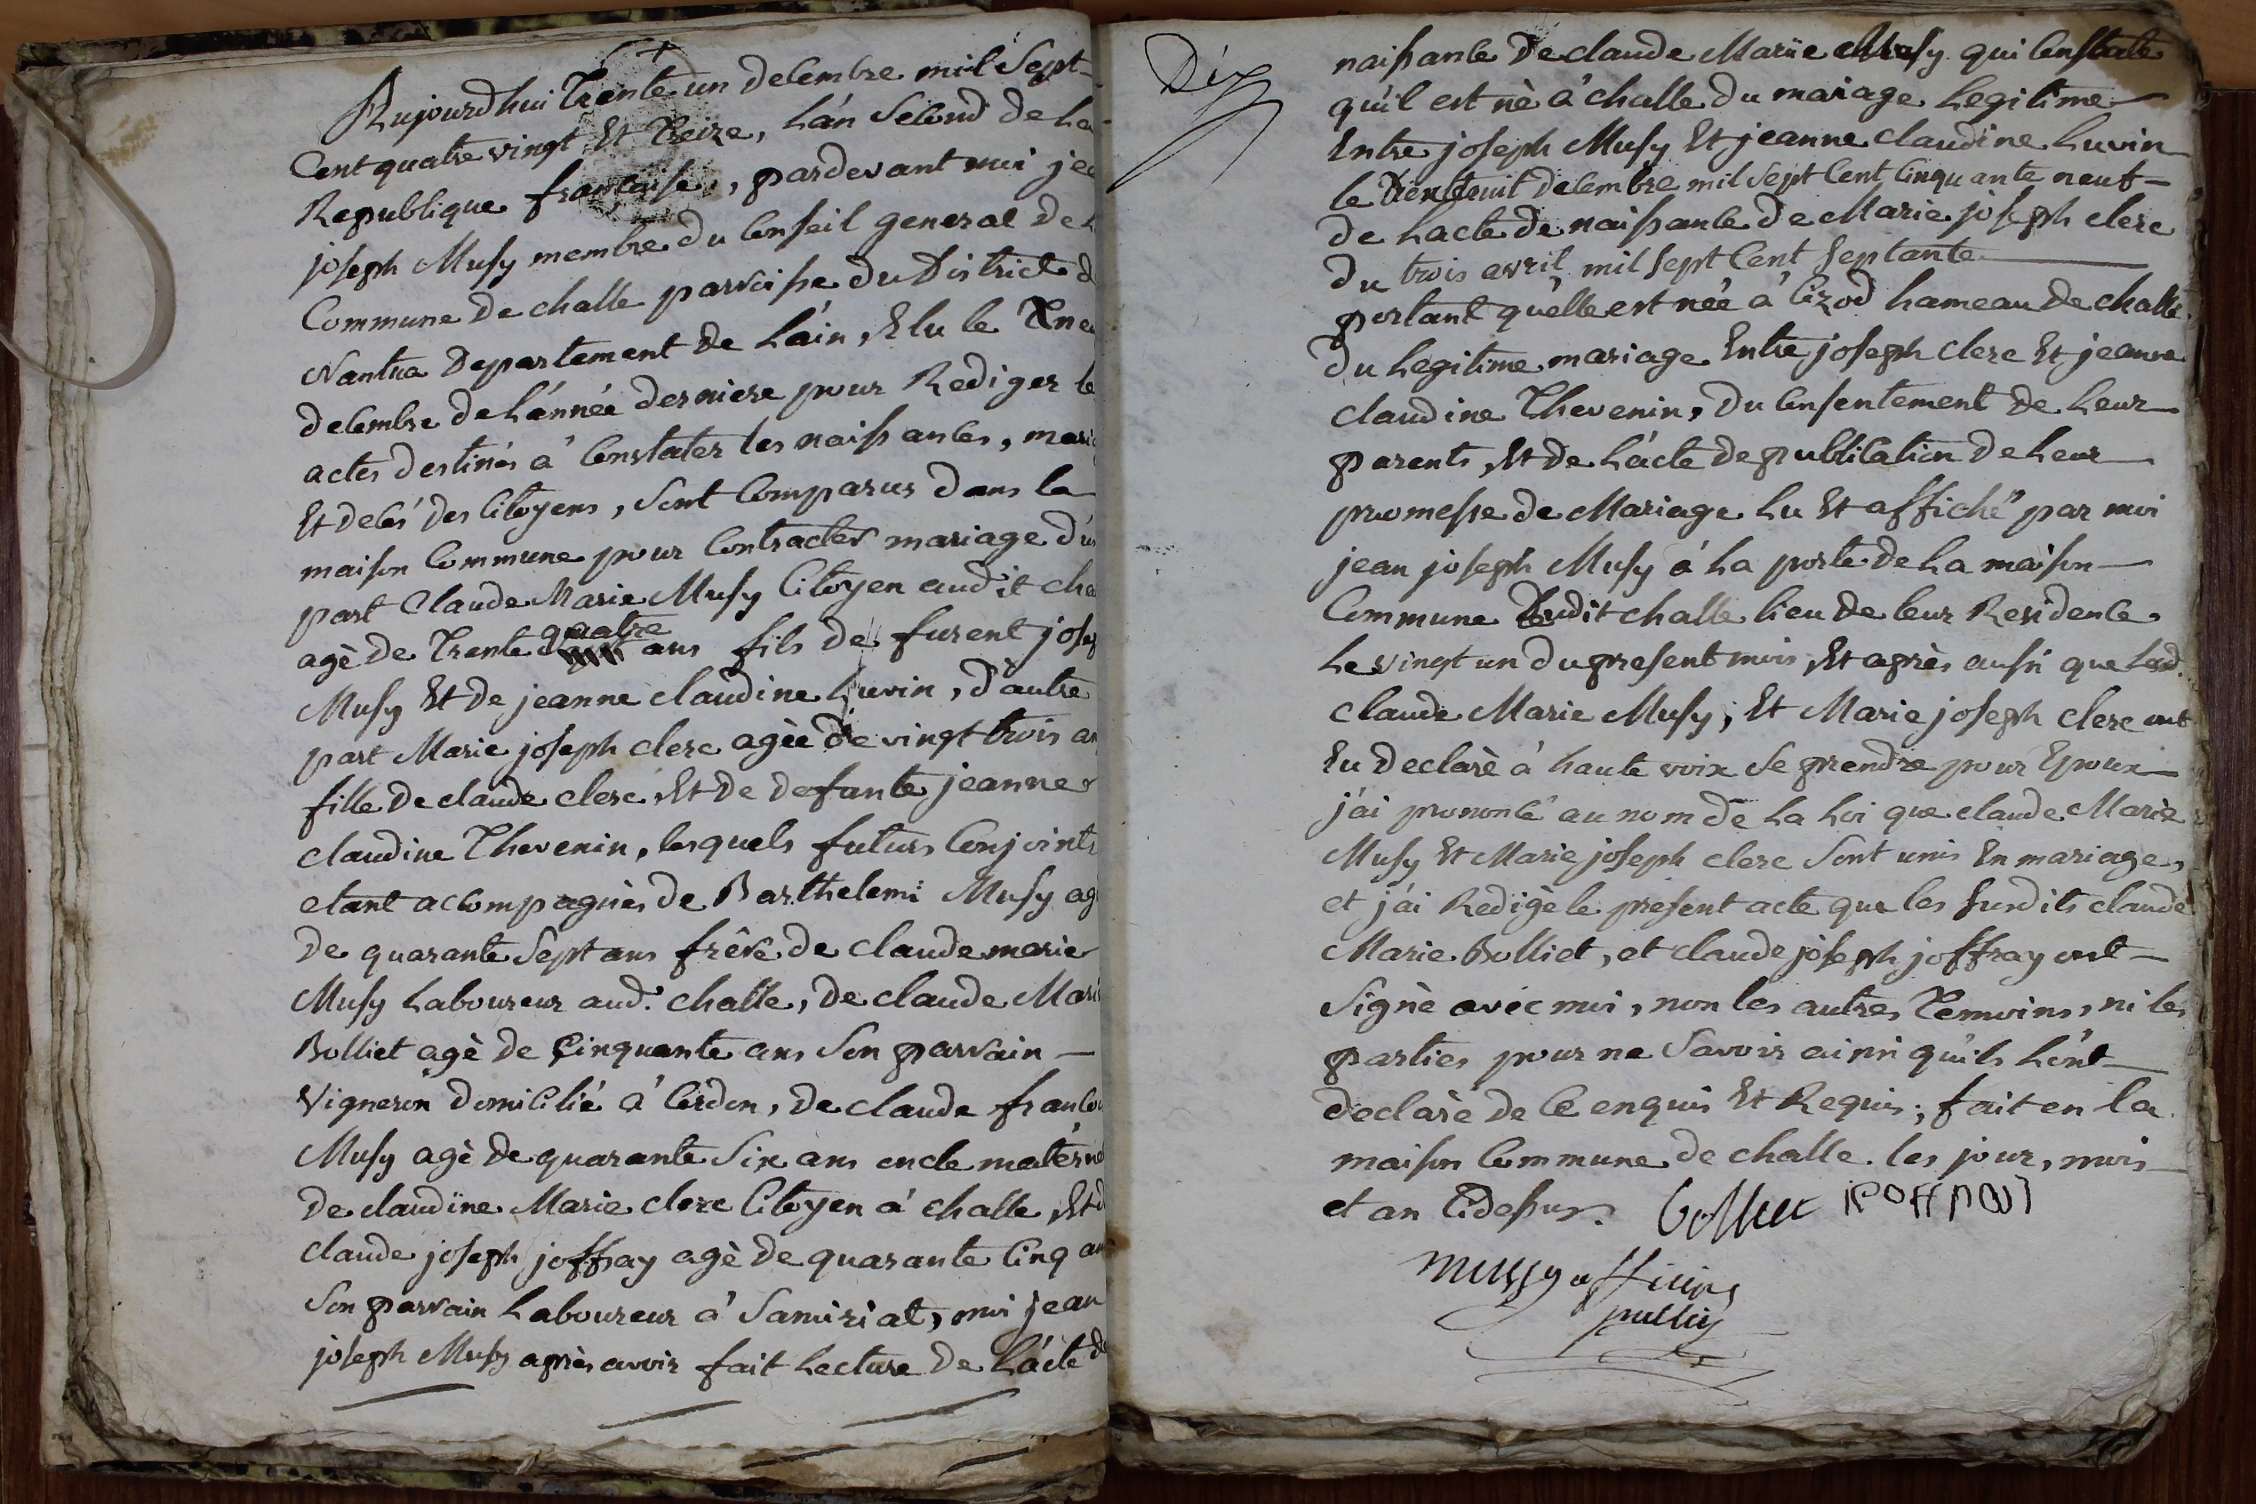 Aujourdhui Trente un decembre mil sept-
Cent quatre vingt Et Treize, L'án second de La
Republique francaise, pardevant moi jea
joseph Musy membre du Conseil general de L
Commune de challe parroisse du District d
Nantua Departement de L'áin, Elu le Xne
decembre de L'année derniere pour Rediger le
actes destinés à Constater les naissances, mari
Et deces des Citoyens, sont Comparus dans la
maison Commune pour Contracter mariage d'ú
part Claude Marie Musy Citoyen audit cha
agè de Trente quatre ans fils de furent josep
Musy Et de jeanne claudine Luvin, d'autre
part Marie joseph clerc agèe de vingt trois an
fille de claude clerc, Et de defunte jeanne
claudine Thevenin, lesquels futurs Conjoints
etant accompagnès de Barthelemi Musy ag
de quarante sept ans frère de claude marie
Musy Laboureur aud. challe, de claude Mari
Bolliet agè de Çinquante ans son parrain —
Vigneron domicilié à Cerdon, de claude francoi
Musy agè de quarante six ans oncle materne
de claudine Marie clerc Citoyen à challe, Et d
claude joseph joffray agè de quarante Cinq an
son parrain Laboureur à Samiriat, moi jean
joseph Musy après avoir fait Lecture de L'ácte de
Dix
naissance de claude Marie Musy qui Constate
qu'il est nè à challe du mariage Legitime —
Entre joseph Musy Et jeanne claudine Luvin
le decembre mil sept Cent Cinquante neuf —
de Lacte de naissance de Marie joseph clerc
du trois avril mil sept Cent septante —
portant qu'elle est née à Cizod hameau de challe
du Legitime mariage Entre joseph clerc Et jeanne
claudine Thevenin, du Consentement de Leur —
parents, Et de L'ácte de publication de Leur —
promesse de Mariage Lu Et affiché par moi
jean joseph Musy à La porte de La maison —
Commune dudit challe lieu de leur Residence
Le vingt un du present mois, Et après aussi que Lesd.
claude Marie Musy, Et Marie joseph clerc ont
Eu declarè à haute voix se prendre pour Epoux —
j'ai prononcé au nom de La Loi que claude Marie
Musy Et Marie joseph clerc sont unis En mariage,
et j'ai Redigè le present acte que les susdits claude
Marie Bolliet, et claude joseph joffray ont —
signè avec moi, non les autres Temoins, ni les
parties pour ne savoir ainsi qu'ils L'ont —
declarè de Ce enquis Et Requis; fait en la
maison Commune de challe. les jour, mois —
et an Cidessus. bolliet
Mussy officier
public